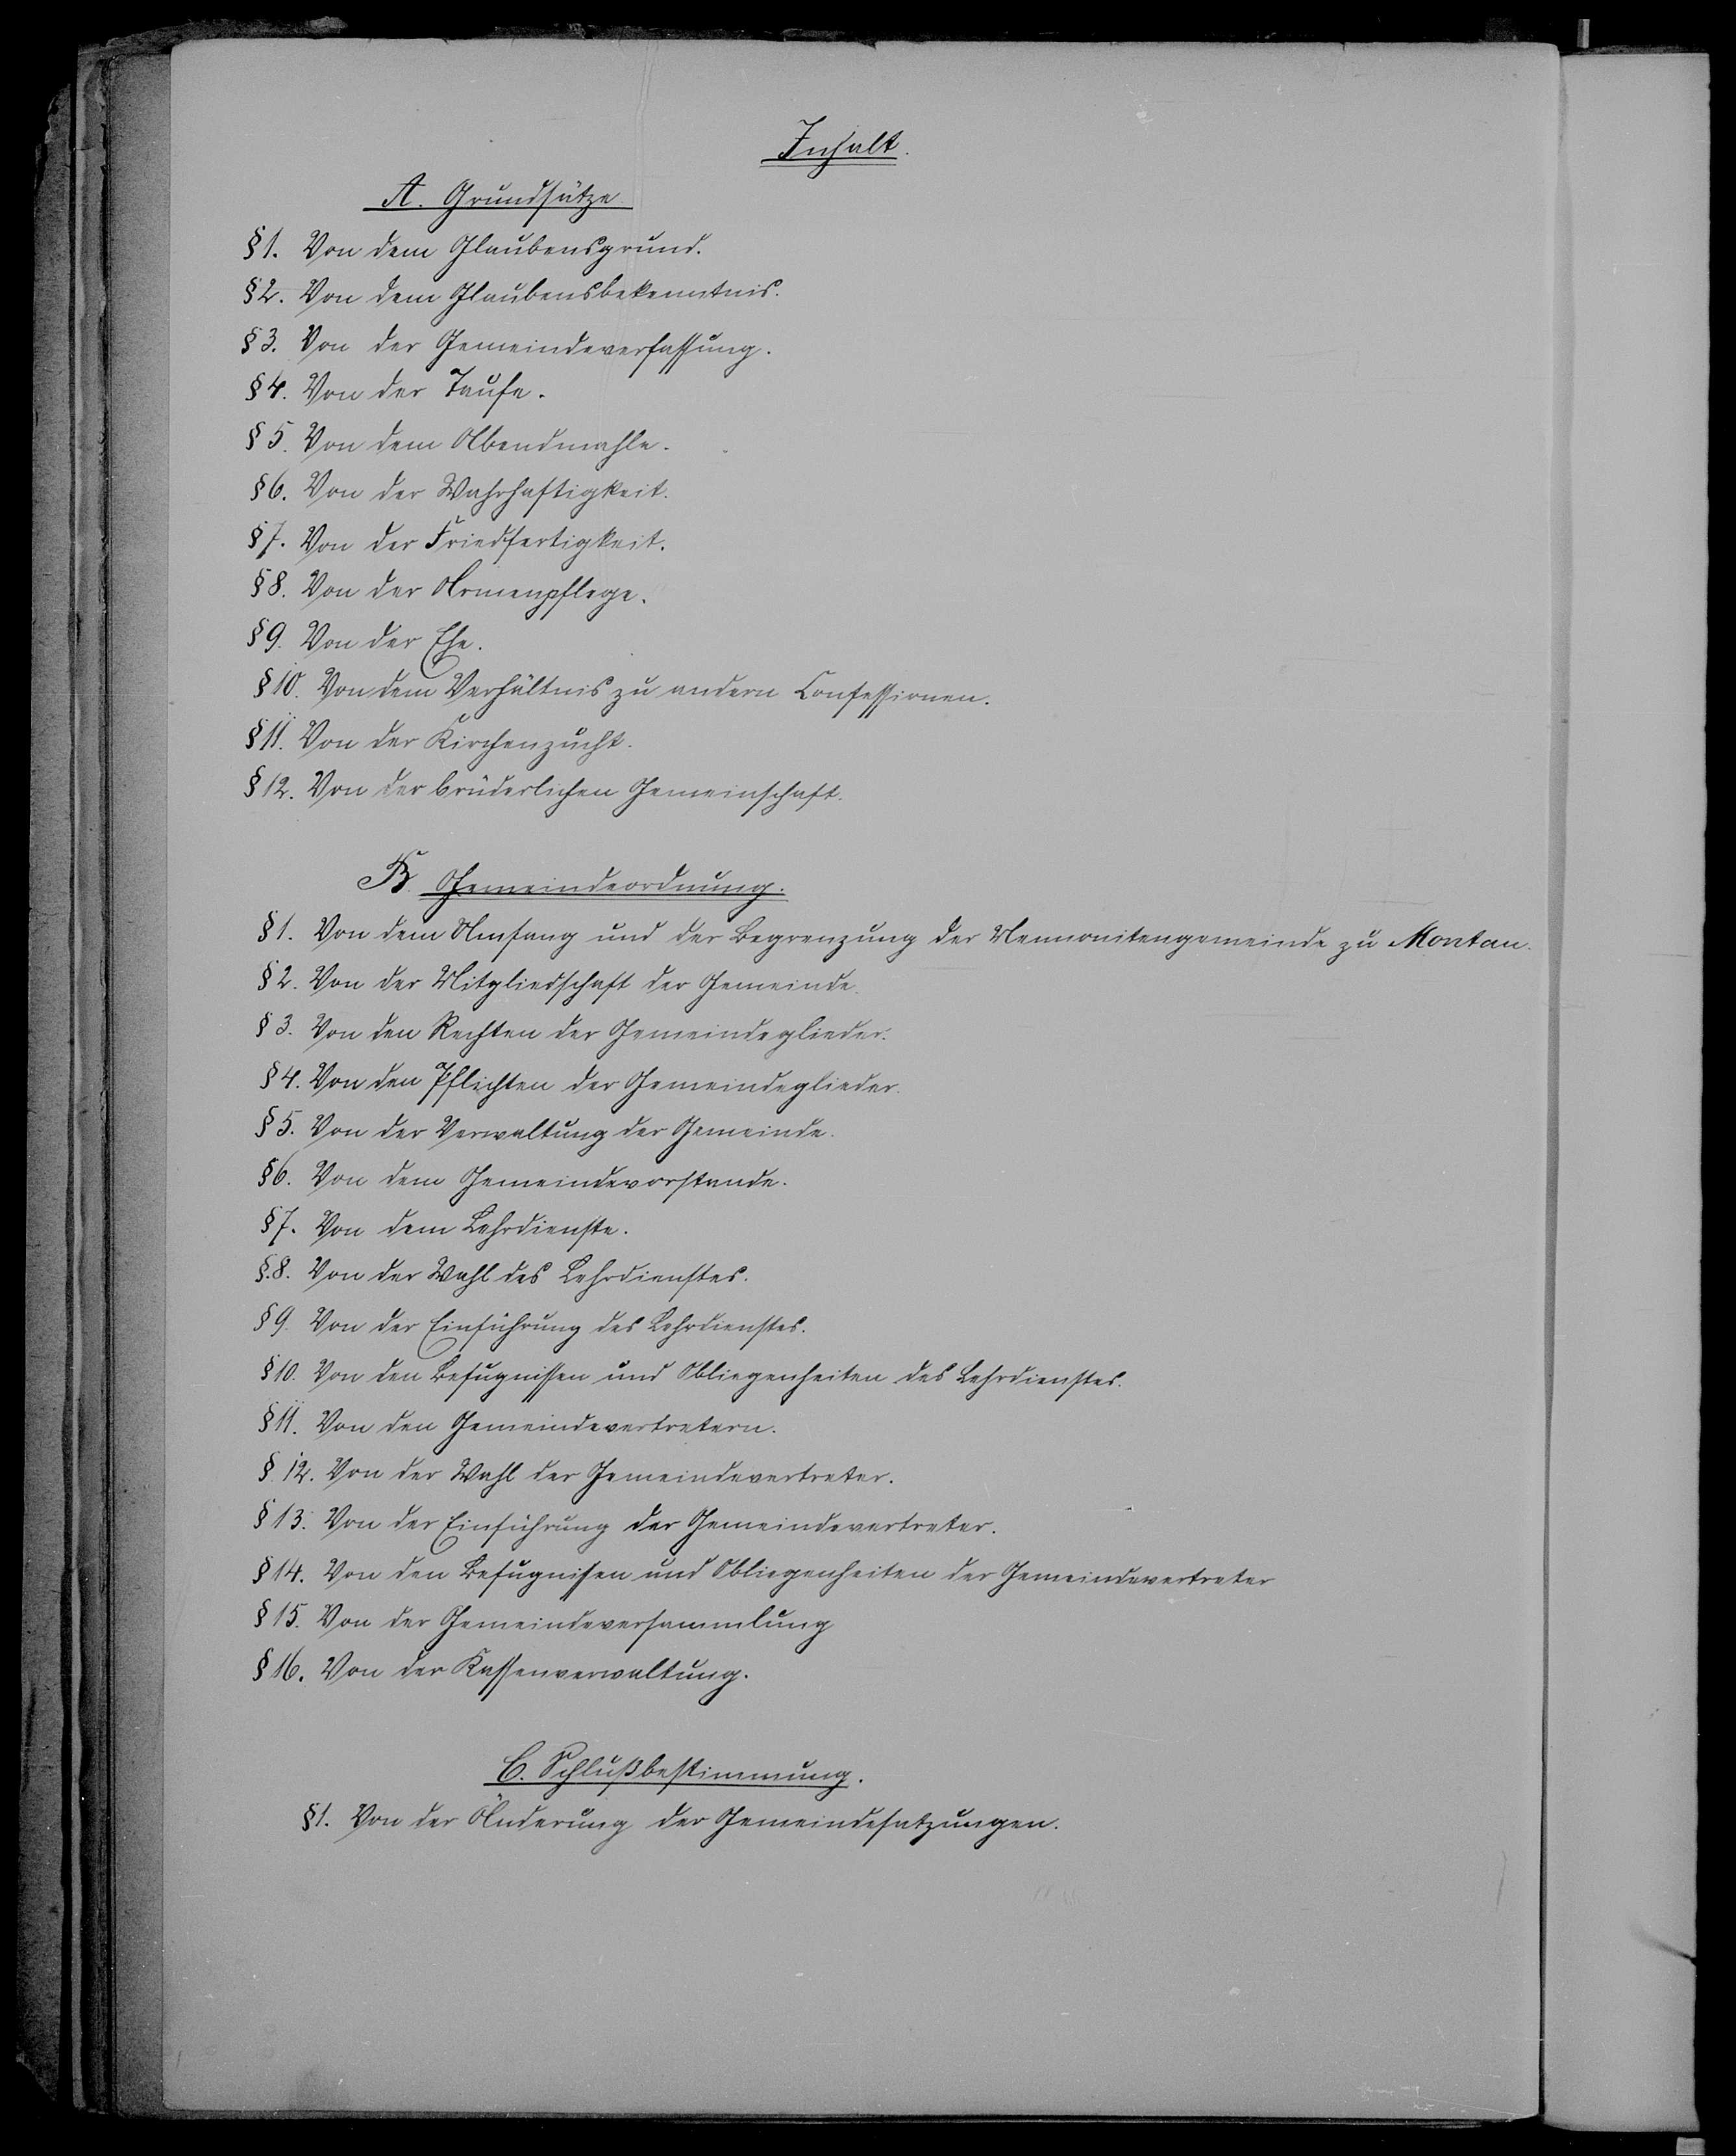 Inhalt.
A. Grundsätze
§ 1. Von dem Glaubensgrund.
§ 2. Von dem Glaubensbekenntnis.
§ 3. Von der Gemeindeverfassung.
§ 4. Von der Taufe.
§ 5. Von dem Abendmahle.
§ 6. Von der Wahrhaftigkeit.
§ 7. Von der Friedfertigkeit.
§ 8. Von der Armenpflege.
§ 9. Von der Ehe.
§ 10. Von dem Verhältnis zu andern Confessionen.
§ 11. Von der Kirchenzucht.
§ 12. Von der brüderlichen Gemeinschaft.
B. Gemeindeordnung.
§ 1. Von dem Umfang und der Begrenzung der Mennonitengemeinde zu Montau.
§ 2. Von der Mitgliedschaft der Gemeinde.
§ 3. Von den Rechten der Gemeindeglieder.
§ 4. Von den Pflichten der Gemeindeglieder.
§ 5. Von der Verwaltung der Gemeinde.
§ 6. Von dem Gemeindevorstande.
§ 7. Von dem Lehrdienste.
§. 8. Von der Wahl des Lehrdienstes.
§ 9. Von der Einführung des Lehrdienstes.
§ 10. Von den Befugnissen und Obliegenheiten des Lehrdienstes.
§ 11. Von den Gemeindevertretern.
§ 12. Von der Wahl der Gemeindevertreter.
§ 13. Von der Einführung der Gemeindevertreter.
§ 14. Von den Befugnissen und Obliegenheiten der Gemeindevertreter
§ 15. Von der Gemeindeversammlung
§ 16. Von der Kassenverwaltung.
C. Schlußbestimmung.
§ 1. Von der Änderung der Gemeindesatzungen.